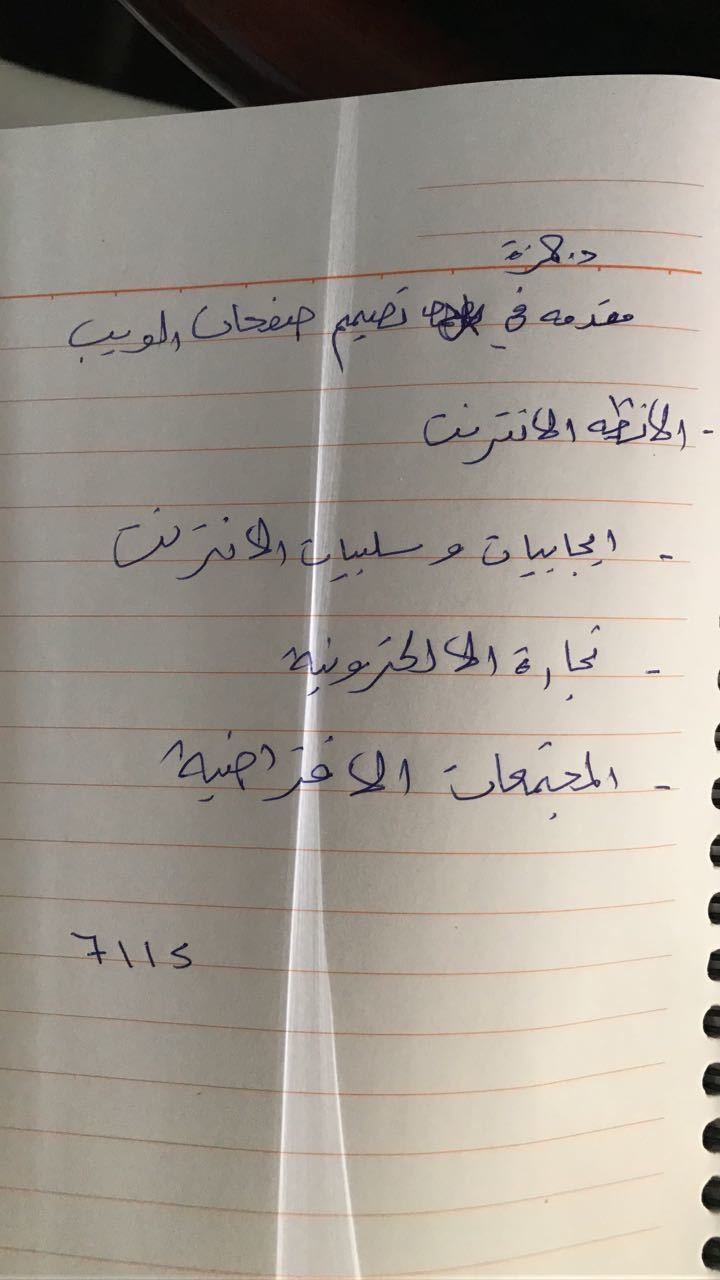 د. حمزة
مقدمه في تصميم صفحات الويب
- الانترنت
- ايجابيات و سلبيات الانترنت
- تجارة الالكترونية
- المجتمعات الافتراضية